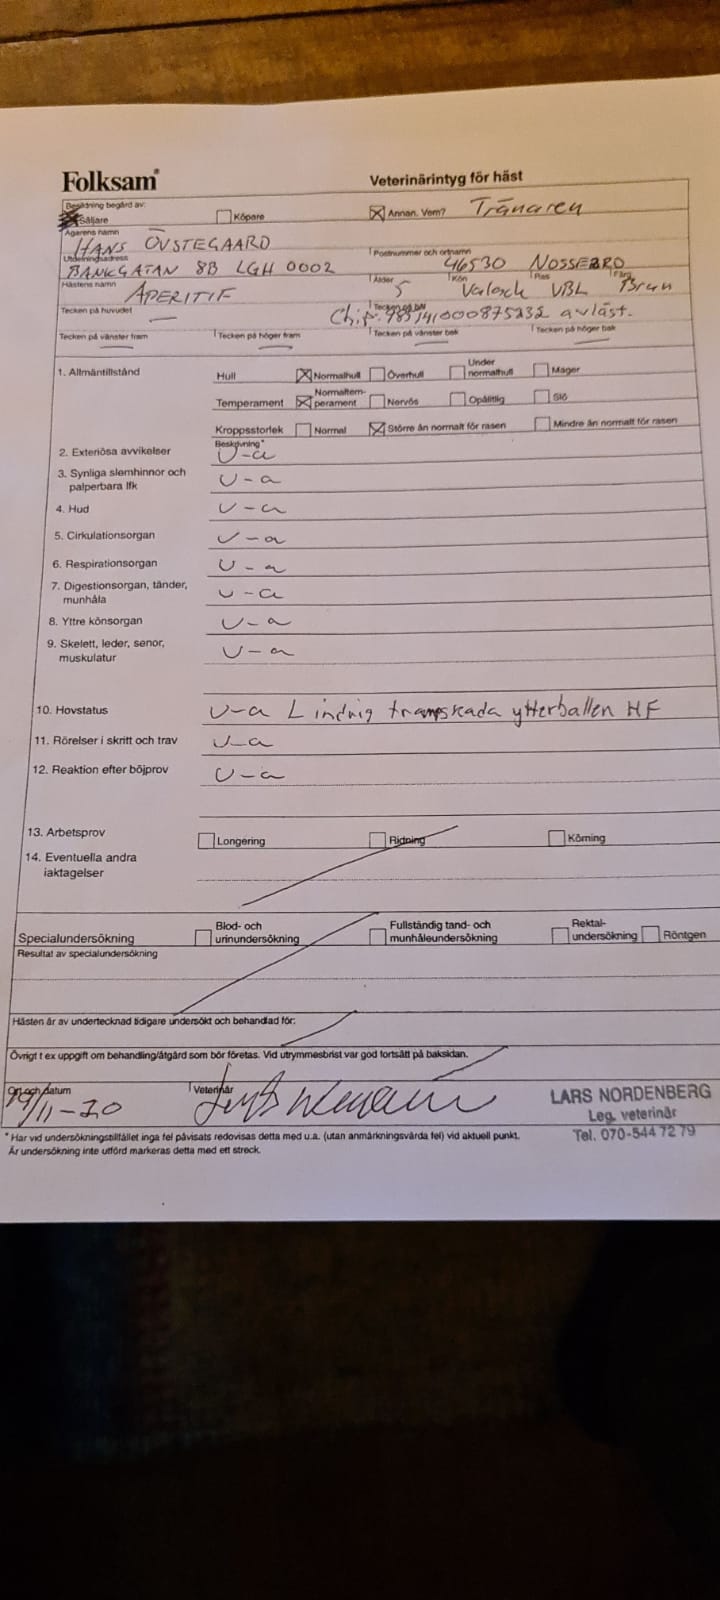 Folksam
Veterinärintyg för häst
Besiktning begärd av:
Säljare Köpare Annan. Vem? Tränaren
Ägarens namn
HANS ÖVSTEGAARD
Utdelningsadress Postnummer och ortnamn
BANKGATAN 8B LGH 0002 46530 NOSSEBRO
Hästens namn Ålder Kön Ras Färg
APERITIF 5 Valack VBL Brun
Tecken på huvudet Tecken på hals
Chip. avläst.
Tecken på vänster fram Tecken på höger fram Tecken på vänster bak Tecken på höger bak
1. Allmäntillstånd Hull Normalhull Överhull Under normalhull Mager
Temperament Normaltemperament Nervös Opålitlig Slö
Kroppsstorlek Normal Större än normalt för rasen Mindre än normalt för rasen
Beskrivning*
2. Exteriösa avvikelser U-a
3. Synliga slemhinnor och
palperbara lfk U-a
4. Hud U-a
5. Cirkulationsorgan U-a
6. Respirationsorgan U-a
7. Digestionsorgan, tänder,
munhåla U-a
8. Yttre könsorgan U-a
9. Skelett, leder, senor,
muskulatur U-a
10. Hovstatus U-a Lindrig trampskada ytterballen HF
11. Rörelser i skritt och trav U-a
12. Reaktion efter böjprov U-a
13. Arbetsprov Longering Ridning Körning
14. Eventuella andra
iaktagelser
Specialundersökning Blod- och urinundersökning Fullständig tand- och munhåleundersökning Rektal-undersökning Röntgen
Resultat av specialundersökning
Hästen är av undertecknad tidigare undersökt och behandlad för:
Övrigt t ex uppgift om behandling/åtgärd som bör företas. Vid utrymmesbrist var god fortsätt på baksidan.
Ort och datum Veterinär
19/11-20
LARS NORDENBERG
Leg. veterinär
Tel. 070-544 72 79
* Har vid undersökningstillfället inga fel påvisats redovisas detta med u.a. (utan anmärkningsvärda fel) vid aktuell punkt.
Är undersökning inte utförd markeras detta med ett streck.